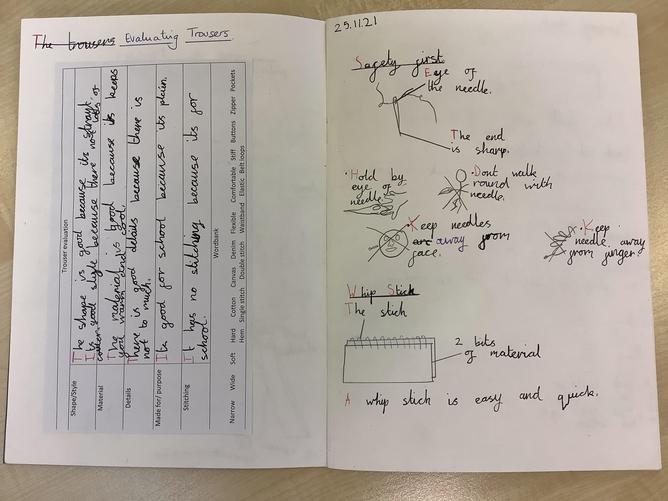 The trousers Evaluating Trousers.
Trouser evaluation
Shape/Style
The shape is good because its strayt.
Its good style because there not lots of
Material
The material is good because its keeps
you warm and is cool.
Details
There is good details because there is
not to much.
Made for/ purpose
Its good for school because its plain.
Stitching
It has no stitching because its for
school.
Wordbank
Narrow Wide Soft Hard Cotton Canvas Denim Flexible Comfortable Stiff Buttons Zipper Pockets
Hem Single stitch Double stitch Waistband Elastic Belt loops
25.11.21
Sagety first
Eye of
the needle.
The end
is sharp.
·Hold by
eye of
needle
·Dont walk
round with
needle.
·Keep needles
are away from
face.
·Keep
needle away
from finger.
Whip Stick
The stich
2 bits
of material
A whip stich is easy and quick.